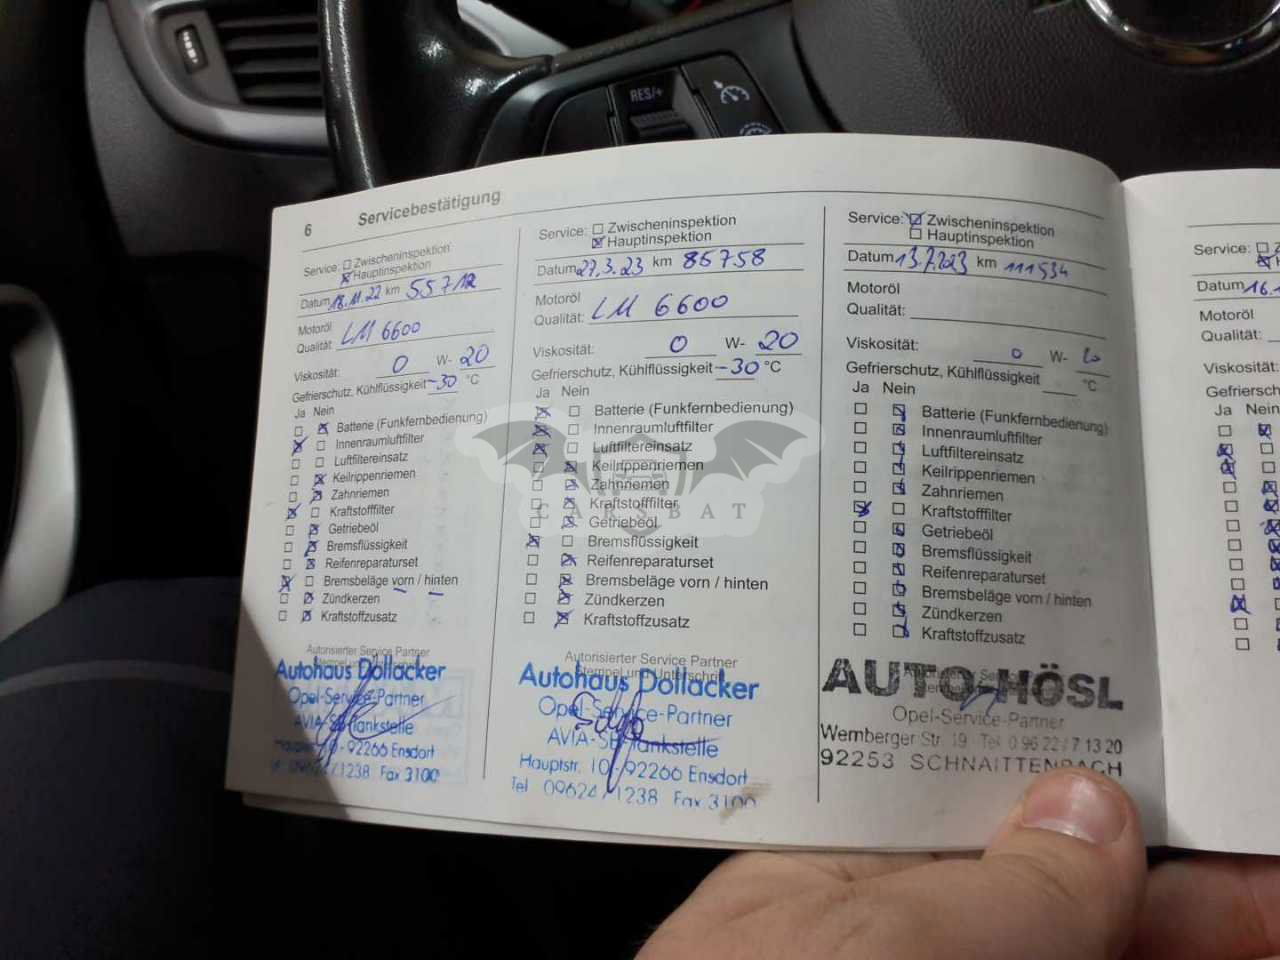 RES/+
6 Servicebestätigung
Service: Zwischeninspektion
Hauptinspektion
Datum 18.11.22 km 55712
Motoröl
Qualität: LM 6600
Viskosität: 0 W- 20
Gefrierschutz, Kühlflüssigkeit -30 °C
Ja Nein
Batterie (Funkfernbedienung)
Innenraumluftfilter
Luftfiltereinsatz
Keilrippenriemen
Zahnriemen
Kraftstofffilter
Getriebeöl
Bremsflüssigkeit
Reifenreparaturset
Bremsbeläge vorn / hinten
Zündkerzen
Kraftstoffzusatz
Autorisierter Service Partner
Autohaus Dollacker
Opel-Service-Partner
AVIA-SB-Tankstelle
Hauptstr. 10 - 92266 Ensdorf
09624/1238 Fax 3100
Service: Zwischeninspektion
Hauptinspektion
Datum 27.3.23 km 85758
Motoröl
Qualität: LM 6600
Viskosität: 0 W- 20
Gefrierschutz, Kühlflüssigkeit -30 °C
Ja Nein
Batterie (Funkfernbedienung)
Innenraumluftfilter
Luftfiltereinsatz
Keilrippenriemen
Zahnriemen
Kraftstofffilter
Getriebeöl
Bremsflüssigkeit
Reifenreparaturset
Bremsbeläge vorn / hinten
Zündkerzen
Kraftstoffzusatz
Autorisierter Service Partner
Stempel und Unterschrift
Autohaus Dollacker
Opel-Service-Partner
AVIA-SB-Tankstelle
Hauptstr. 10 - 92266 Ensdorf
Tel 09624/1238 Fax 3100
Service: Zwischeninspektion
Hauptinspektion
Datum 13.7.23 km 111534
Motoröl
Qualität:
Viskosität: 0 W- 20
Gefrierschutz, Kühlflüssigkeit °C
Ja Nein
Batterie (Funkfernbedienung)
Innenraumluftfilter
Luftfiltereinsatz
Keilrippenriemen
Zahnriemen
Kraftstofffilter
Getriebeöl
Bremsflüssigkeit
Reifenreparaturset
Bremsbeläge vorn / hinten
Zündkerzen
Kraftstoffzusatz
AUTO-HÖSL
Opel-Service-Partner
Wernberger Str. 19 · Tel. 0 96 22 / 7 13 20
92253 SCHNAITTENBACH
Service:
Datum 16.1
Motoröl
Qualität:
Viskosität:
Gefriersc
Ja Nein
CARSBAT